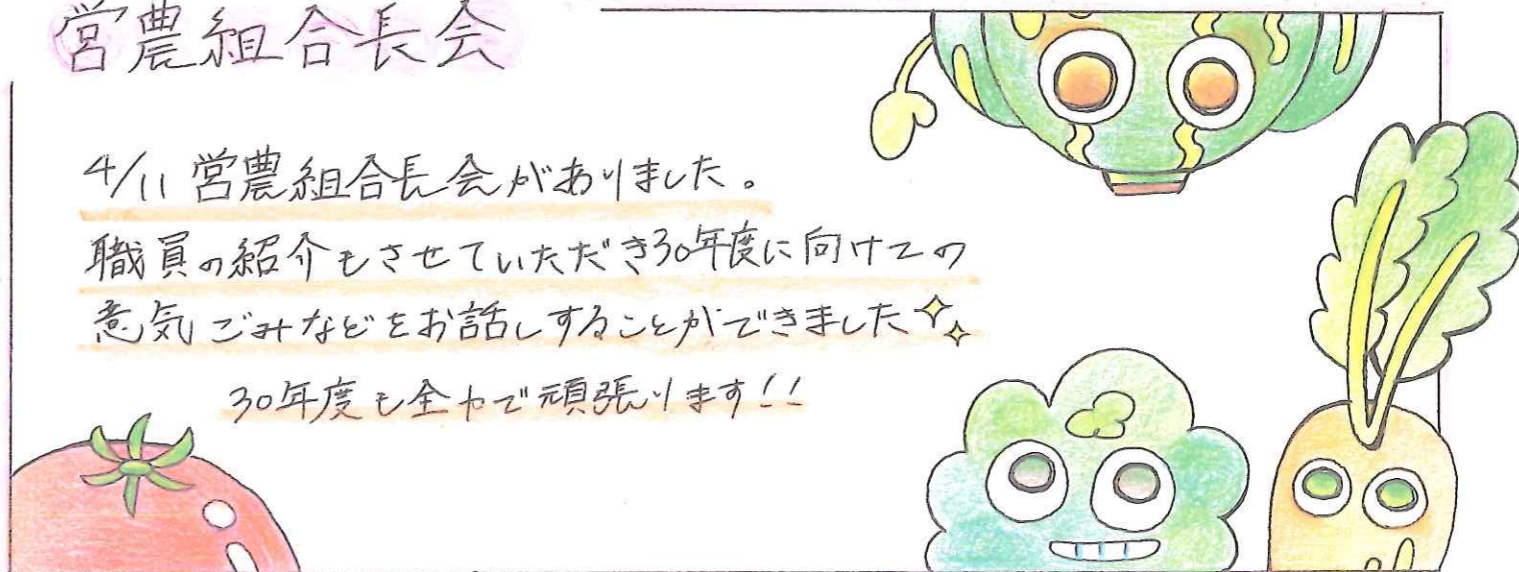 営農組合長会
4/11 営農組合長会がありました。
職員の紹介もさせていただき30年度に向けての
意気ごみなどをお話しすることができました
30年度も全力で頑張ります!!